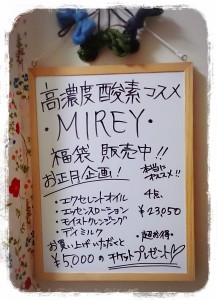 高濃度酸素コスメ
・MIREY・
福袋販売中!!
お正月企画! 本当にオススメ!!
・エクセレントオイル 4点
・エッセンスローション ¥23,050
・モイストクレンジング
・デイミルク ・超お得・
お買い上げいただくと
¥5000のチケットプレゼント♡